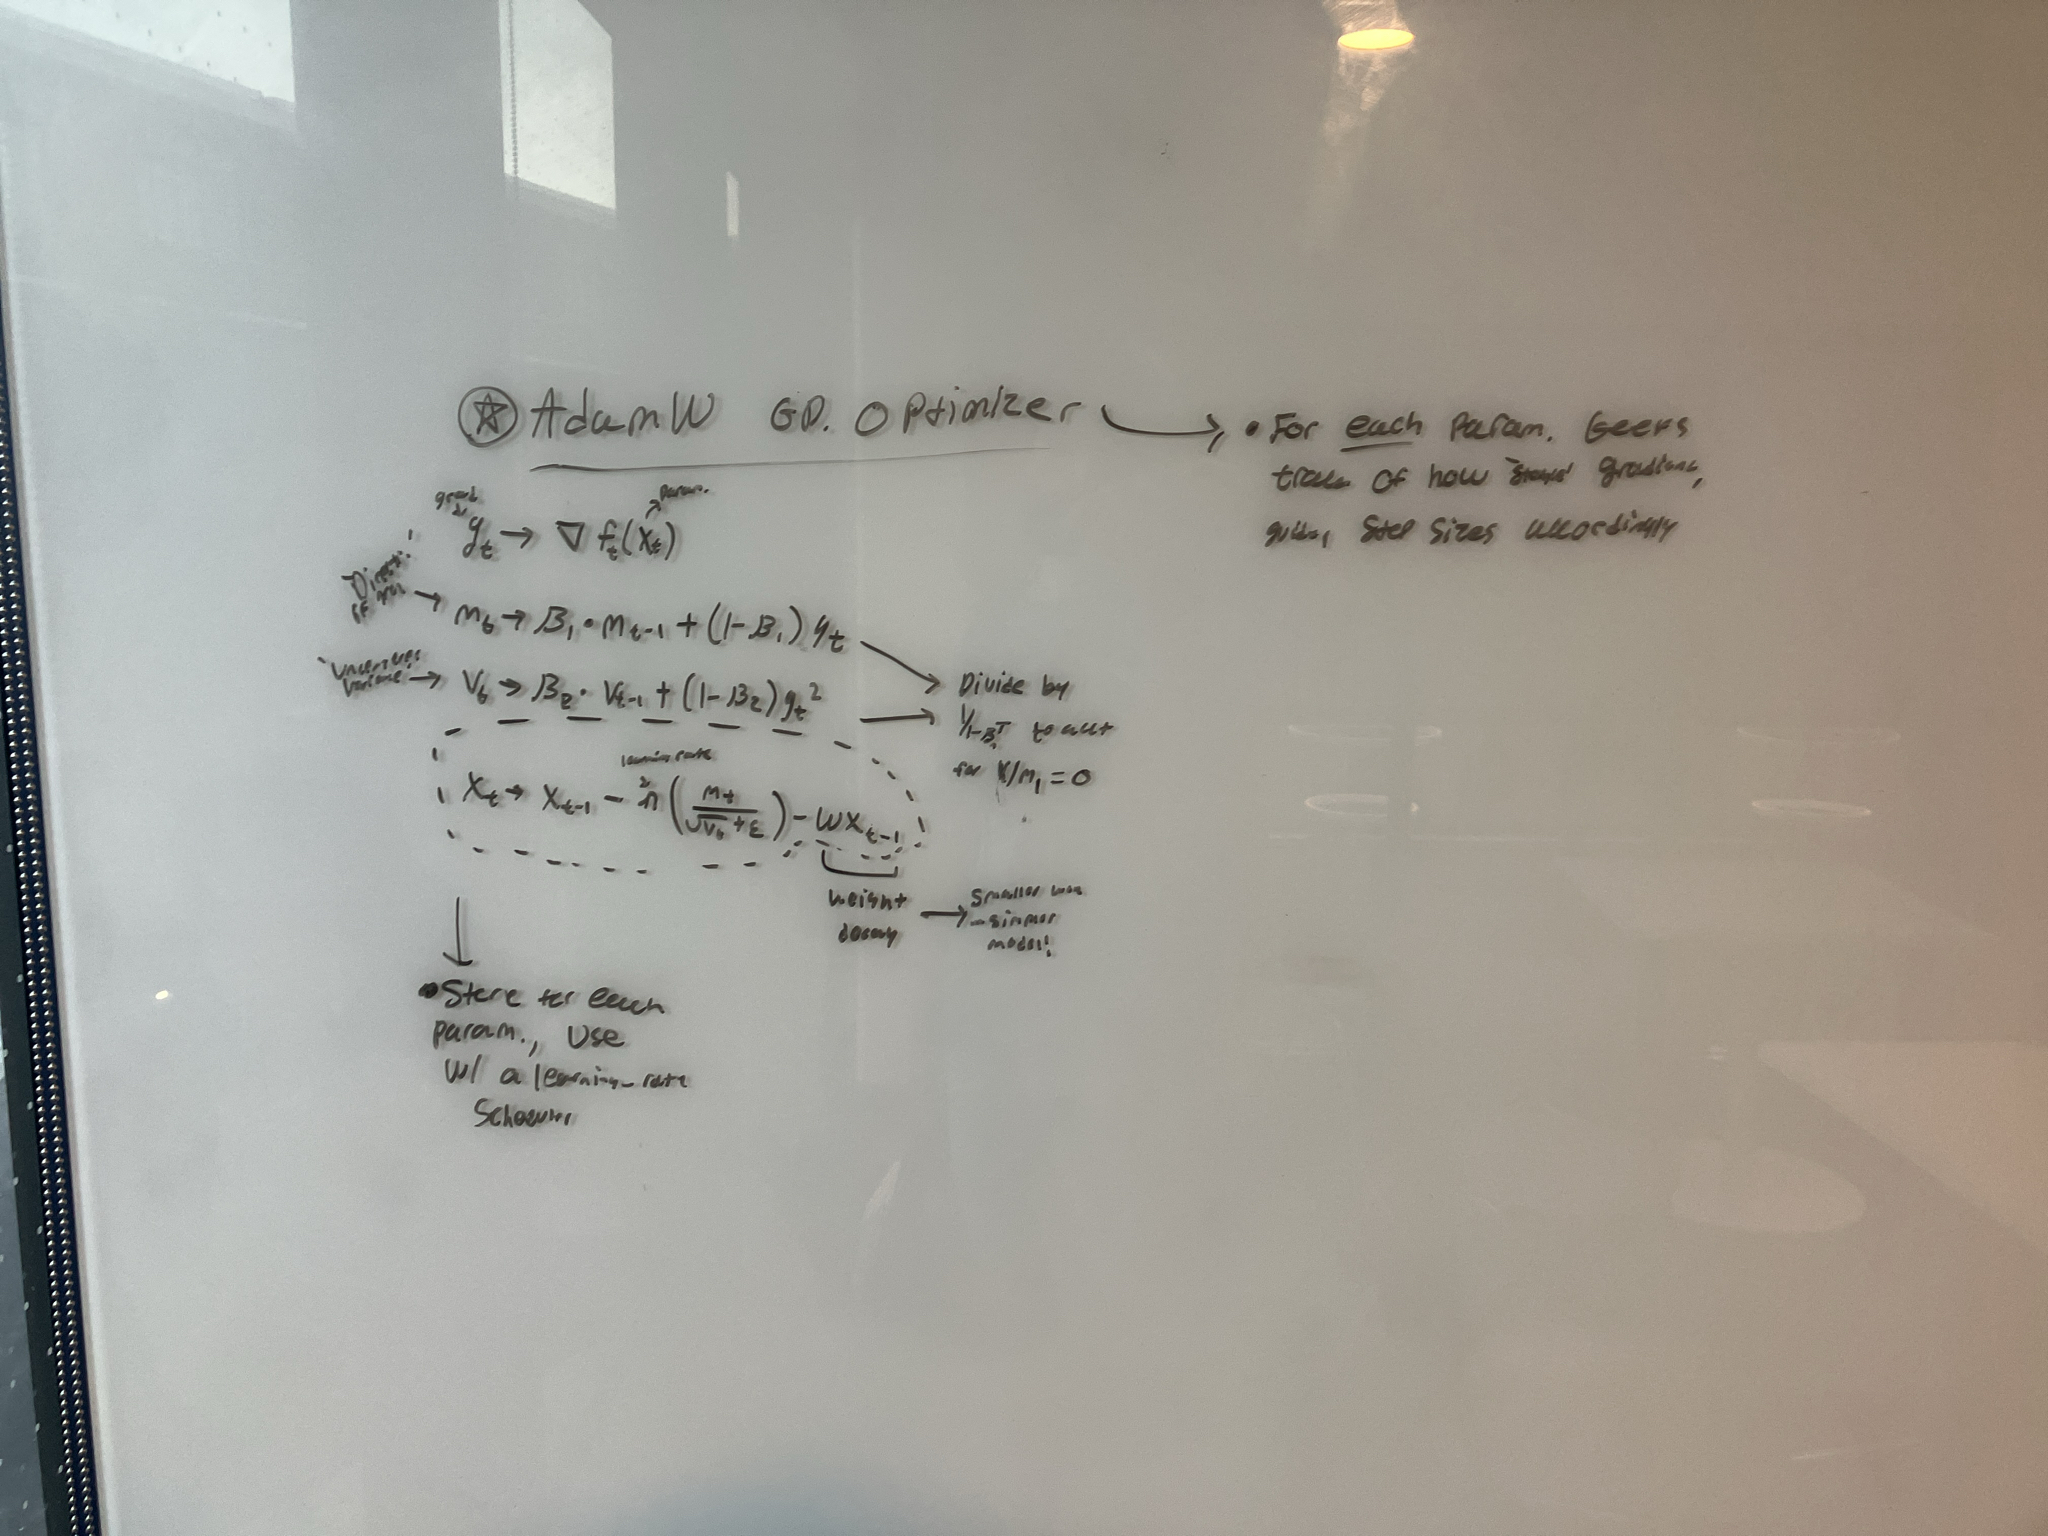 AdamW GD. Optimizer
• For each param. keeps
track of how gradient,
step sizes accordingly
param.
g_t → ∇ f_t(x_t)
m_t → β_1 · m_{t-1} + (1-β_1) g_t
variance → v_t → β_2 · v_{t-1} + (1-β_2) g_t^2
Divide by
1/1-β^T to acct
for v/m_1 = 0
learning rate
x_t → x_{t-1} - η (m_t / √v_t + ε) - wx_{t-1}
weight
decay
→ smaller
model!
• Store for each
param., Use
w/ a learning-rate
scheduler